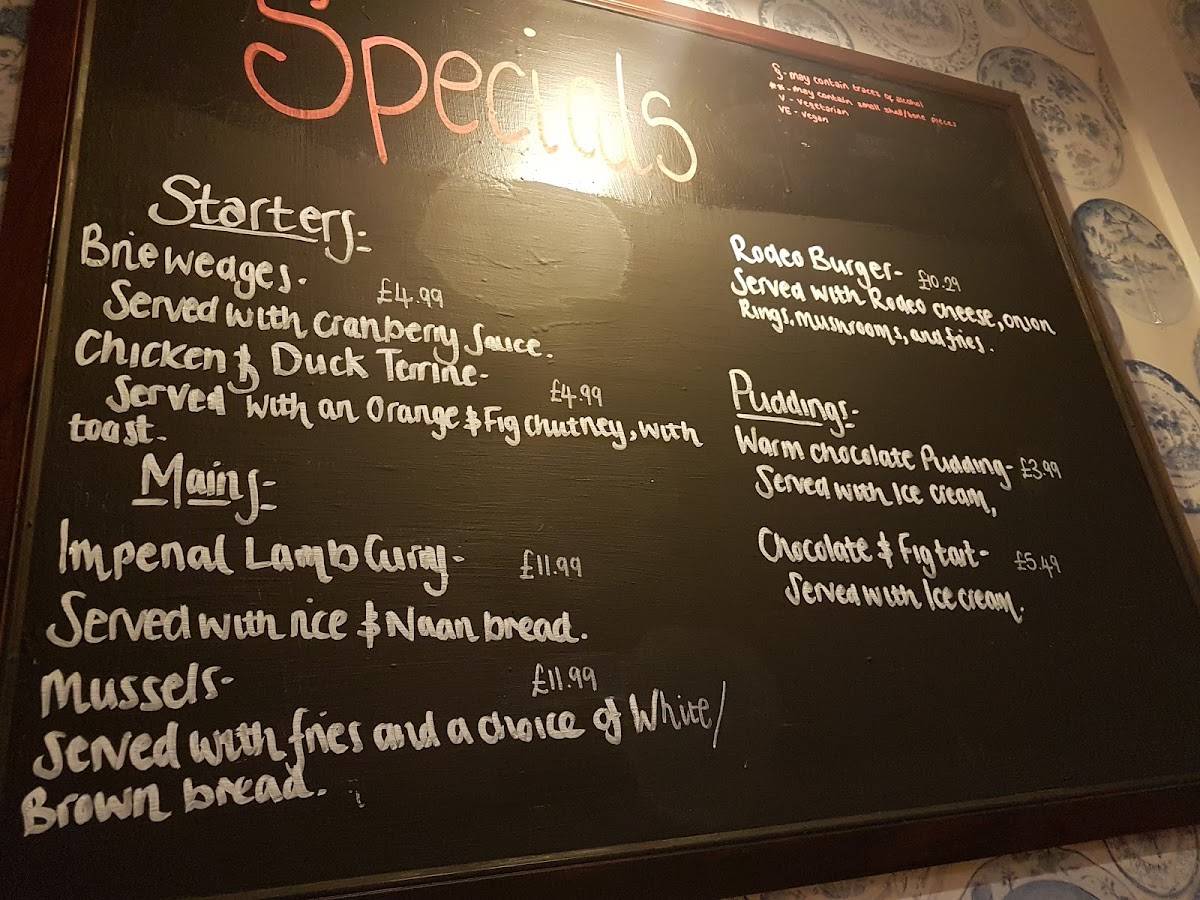 Specials
§ - may contain traces of alcohol
** - may contain small shell/bone pieces
V - vegetarian
VE - vegan
Starters:-
Brie wedges. £4.99
Served with cranberry sauce.
Chicken & Duck Terrine- £4.99
Served with an Orange & Fig chutney, with
toast.
Mains:-
Imperial Lamb Curry- £11.99
Served with rice & Naan bread.
Mussels- £11.99
Served with fries and a choice of White/
Brown bread.
Rodeo Burger- £10.29
Served with Rodeo cheese, onion
Rings, mushrooms, and fries.
Puddings:-
Warm chocolate Pudding- £3.99
Served with Ice cream,
Chocolate & Fig tart- £5.49
Served with Ice cream.